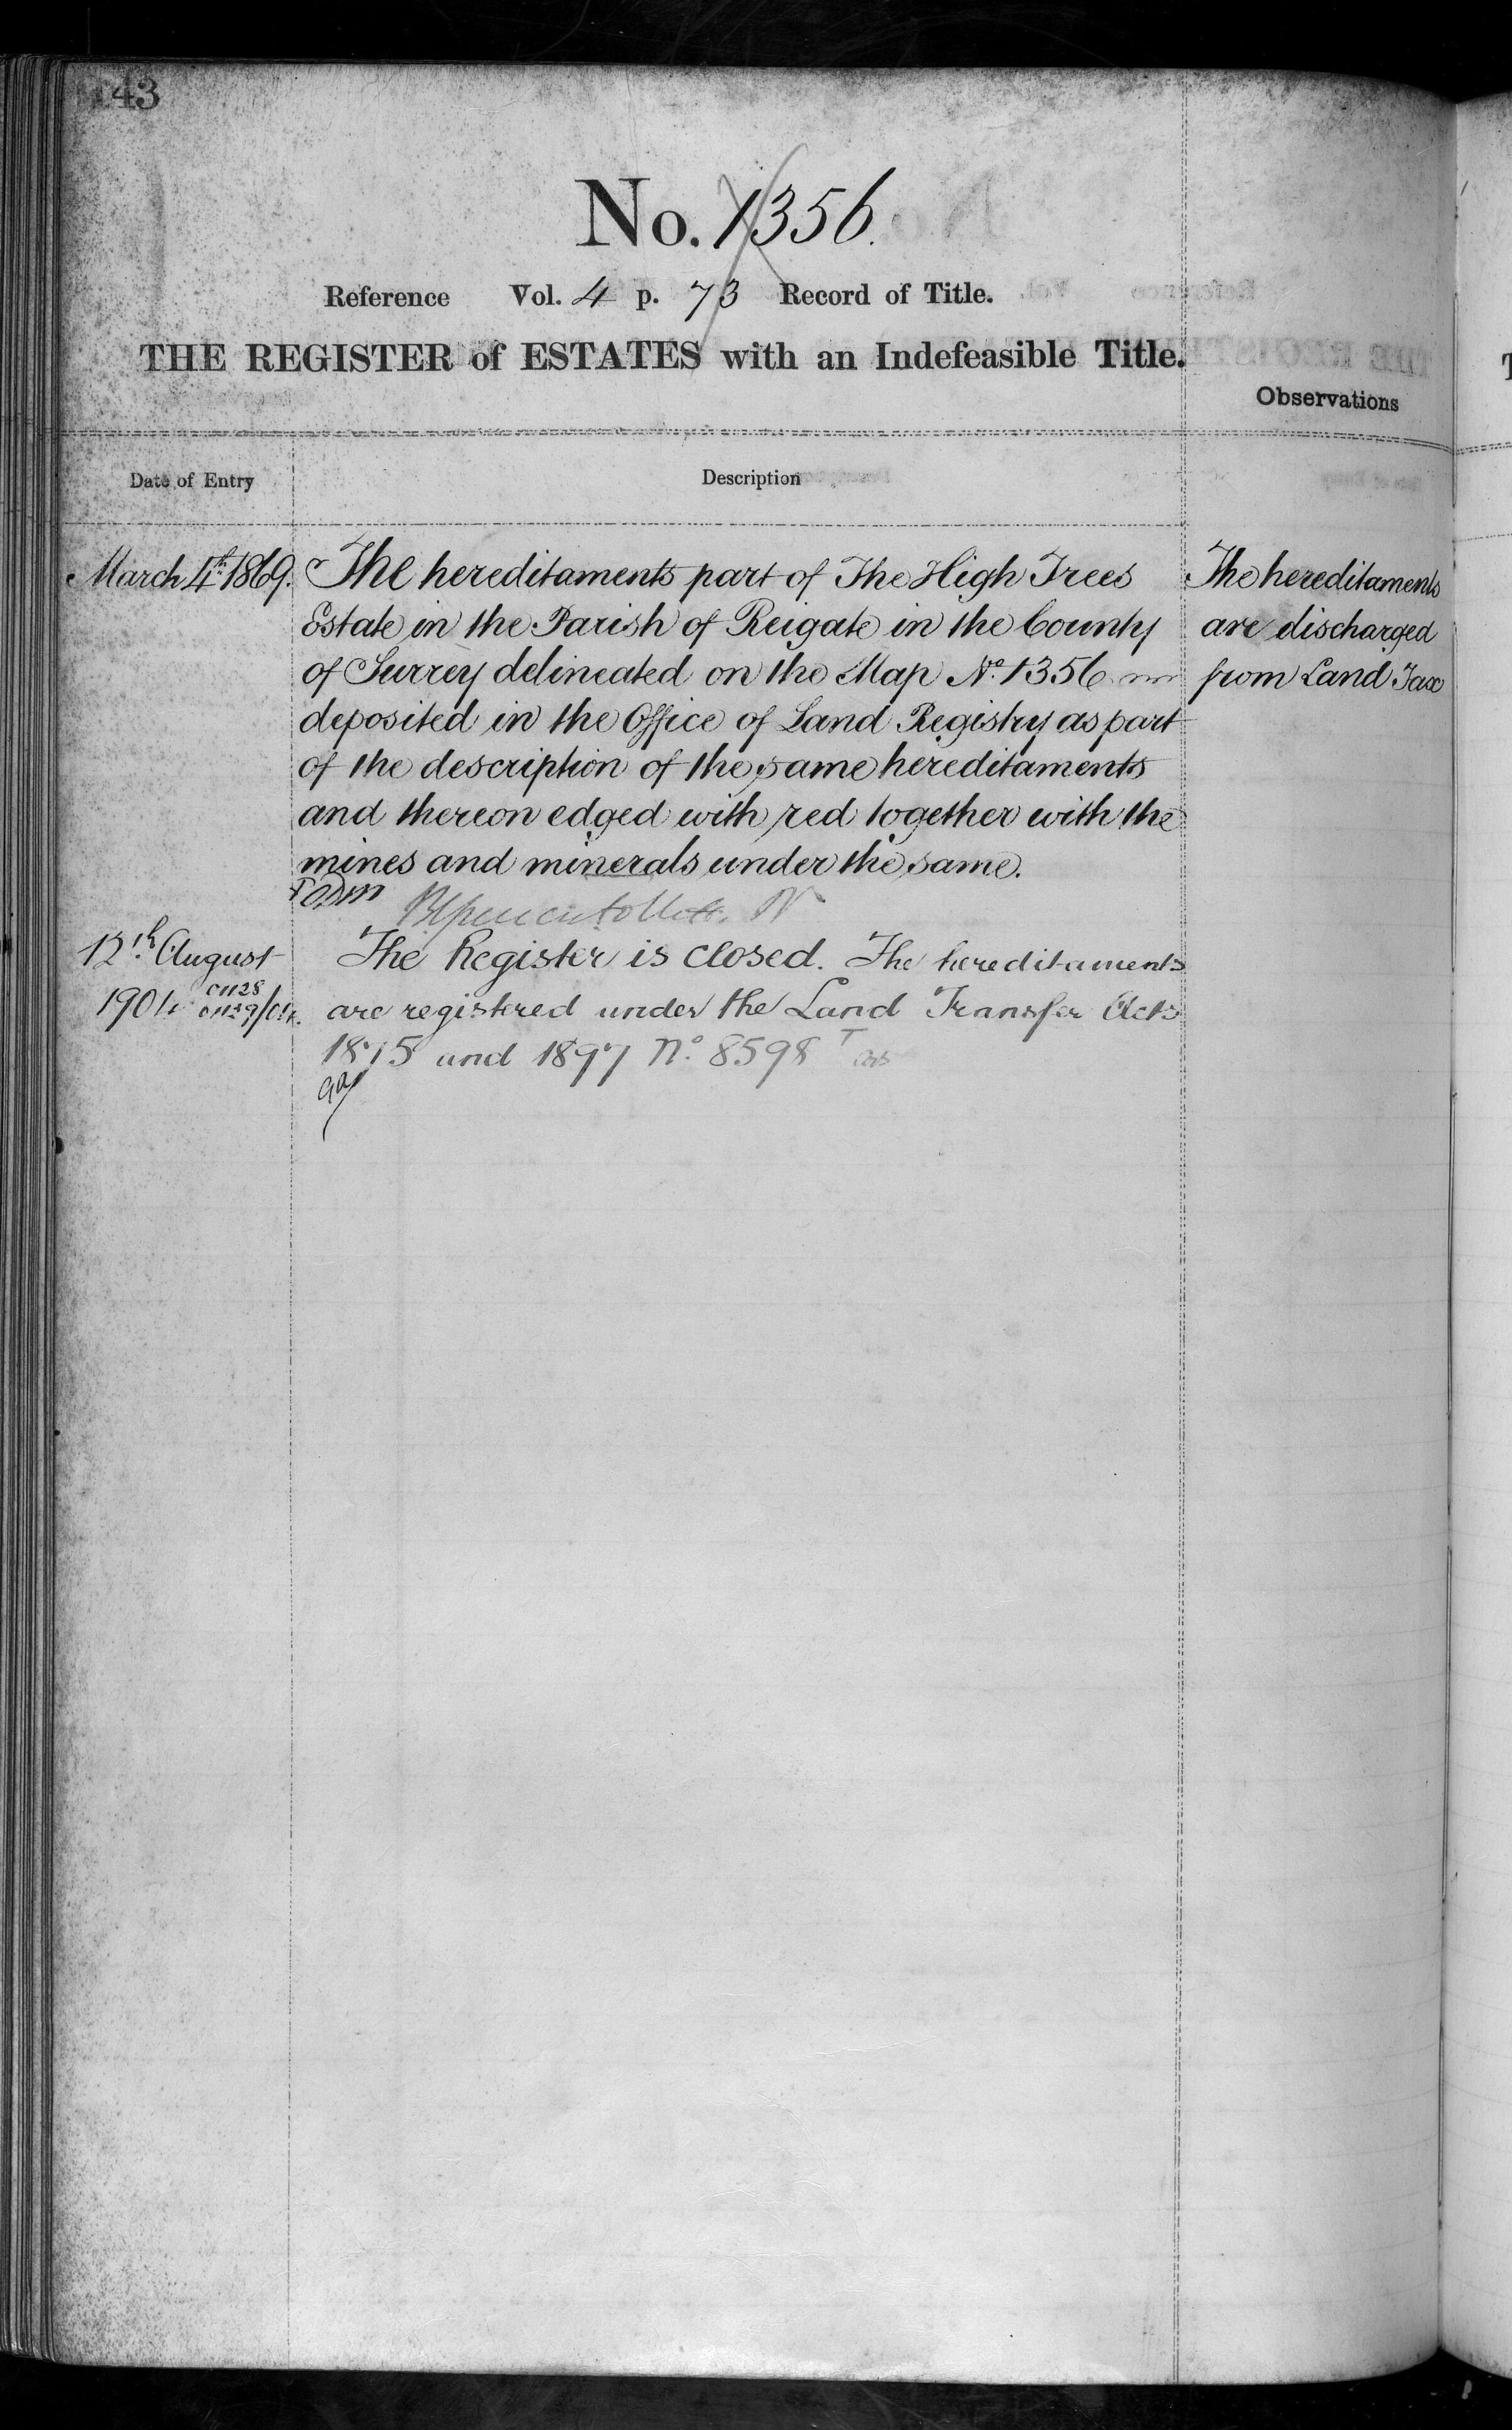 143
No. 1356.
Reference Vol. 4 p. 73 Record of Title.
THE REGISTER of ESTATES with an Indefeasible Title.
Observations
Date of Entry
Description
March 4th 1869.
The hereditaments part of The High Trees
Estate in the Parish of Reigate in the County
of Surrey delineated on the Map No. 1356
deposited in the Office of Land Registry as part
of the description of the same hereditaments
and thereon edged with red together with the
mines and minerals under the same.
The hereditaments
are discharged
from Land Tax
12th August
1904
The Register is closed. The hereditaments
are registered under the Land Transfer Acts
1875 and 1897 No. 8598